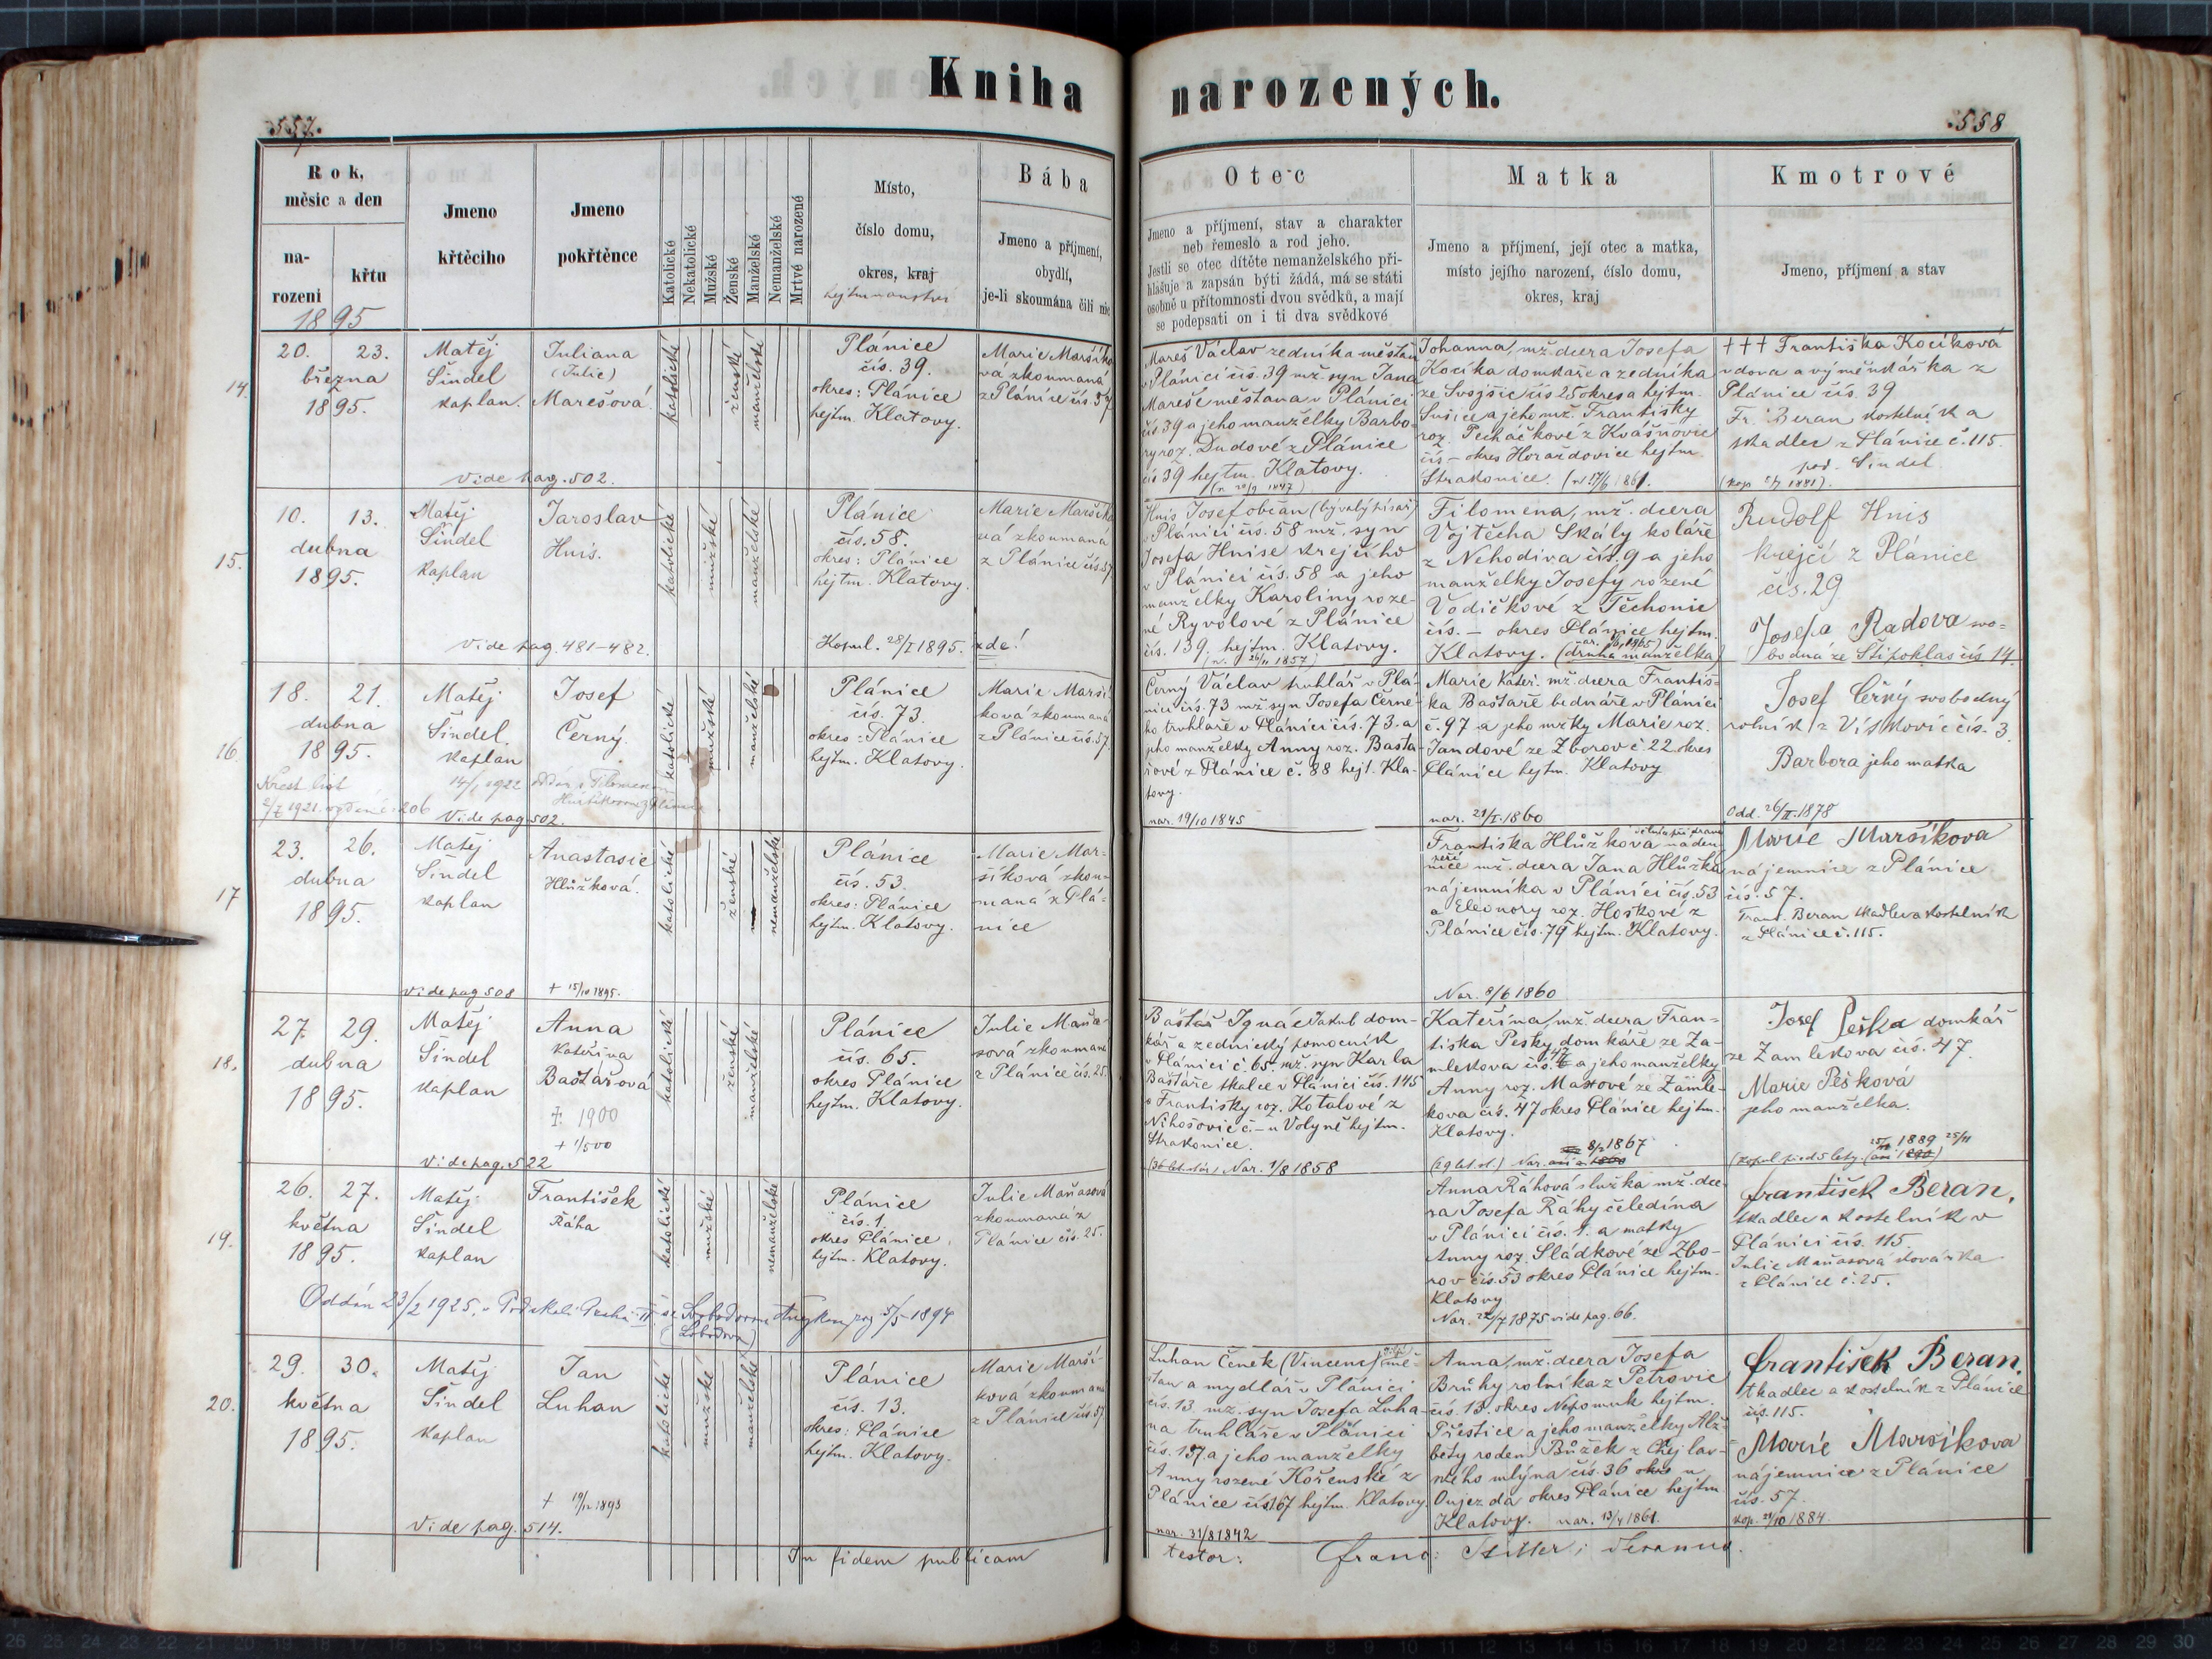 Kniha narozených.
557.
558
Rok,
měsíc a den
na-
rozeni
křtu
1895
Jmeno
křtěcího
Jmeno
pokřtěnce
Katolické
Nekatolické
Mužské
Ženské
Manželské
Nemanželské
Mrtvě narozené
Místo,
číslo domu,
okres, kraj
hejtmanství
Bába
Jmeno a příjmení,
obydlí,
je-li skoumána čili nic
Otec
Jmeno a příjmení, stav a charakter
neb řemeslo a rod jeho.
Jestli se otec dítěte nemanželského při-
hlašuje a zapsán býti žádá, má se státi
osobně u přítomnosti dvou svědků, a mají
se podepsati on i ti dva svědkové
Matka
Jmeno a příjmení, její otec a matka,
místo jejího narození, číslo domu,
okres, kraj
Kmotrové
Jmeno, příjmení a stav
14.
20. 23.
března
1895.
Matěj
Šindel
kaplan.
Juliana
(Julie)
Marešová.
katolické
ženské
manželské
Plánice
čís. 39.
okres: Plánice
hejtm. Klatovy.
Marie Maršíko
vá zkoumaná
z Plánice čís. 57
Vide pag. 502.
Mareš Václav zedník a měšťan
v Plánici čís. 39 mž. syn Jana
Mareše měšťana v Plánici
čís. 39 a jeho manželky Barbo-
ry roz. Dudové z Plánice
čís 39 hejtm. Klatovy.
Johanna, mž. dcera Josefa
Kocíka domkáře a zedníka
ze Svojšic čís 25 okres a hejtm.
Sušice a jeho mž. Františky
roz. Pecháčkové z Kvášňovic
čís – okres Horazdovice hejtm.
Strakonice. (n. 17/6 1861.
+++ Františka Kocíková
vdova a výměnkářka z
Plánice čís. 39
Fr. Beran kostelník a
tkadlec z Plánice č. 115.
pod. Šindel
15.
10. 13.
dubna
1895.
Matěj
Šindel
kaplan
Jaroslav
Hnis.
katolické
mužské
manželské
Plánice
čís. 58.
okres: Plánice
hejtm. Klatovy.
Marie Maršíko
vá zkoumaná
z Plánice čís. 57
Vide pag. 481–482.
Kopul. 28/I 1895. zde!
Hnis Josef občan (bývalý písař)
v Plánici čís. 58 mž. syn
Josefa Hnise krejčího
v Plánici čís. 58 a jeho
manželky Karoliny roze-
né Ryvolové z Plánice
čís. 139. hejtm. Klatovy.
(n. 26/11 1857)
Filomena, mž. dcera
Vojtěcha Skály koláře
z Nehodiva čís. 9 a jeho
manželky Josefy rozené
Vodičkové z Těchonic
čís. – okres Plánice hejtm.
Klatovy. (druhá manželka)
Rudolf Hnis
krejčí z Plánice
čís. 29
Josefa Radova svo-
bodná ze Štipoklas čís 14.
16.
18. 21.
dubna
1895.
Matěj
Šindel
kaplan
Josef
Černý.
katolické
mužské
manželské
Plánice
čís. 73.
okres: Plánice
hejtm. Klatovy.
Marie Marší-
ková zkoumaná
z Plánice čís. 57.
Křest. list
1921. vydán č. 206
14/1 1922
Vide pag. 502.
Černý Václav truhlář v Plá-
nici čís. 73 mž syn Josefa Černé-
ho truhláře v Plánici čís. 73. a
jeho manželky Anny roz. Bašta-
řové z Plánice č. 88 hejt. Kla-
tovy.
nar. 19/10 1845
Marie Kateř. mž dcera Františ-
ka Baštáře bednáře v Plánici
č. 97 a jeho mžky Marie roz.
Jandové ze Zborov č 22 okres
Plánice hejtm. Klatovy
nar. 21/I. 1860
Josef Černý svobodný
rolník z Vískovic čís. 3.
Barbora jeho matka
Odd. 26/II. 1878
17
23. 26.
dubna
1895.
Matěj
Šindel
kaplan
Anastasie
Hlůžková.
katolické
ženské
nemanželské
Plánice
čís. 53.
okres: Plánice
hejtm. Klatovy.
Marie Mar-
šíková zkou-
maná z Plá-
nice
Vide pag 508
+ 15/10 1895.
Františka Hlůžková náden-
nice mž. dcera Jana Hlůžka
nájemníka v Plánici čís. 53
a Eleonory roz. Hoškové z
Plánice čís. 79 hejtm. Klatovy.
Nar. 8/6 1860
Marie Maršíkova
nájemnice z Plánice
čís. 57.
Frant. Beran tkadlec a kostelník
z Plánice č. 115.
18.
27. 29.
dubna
1895.
Matěj
Šindel
kaplan
Anna
Kateřina
Baštařová
+ 1900
+ 1/5 00
katolické
ženské
manželské
Plánice
čís. 65.
okres Plánice
hejtm. Klatovy.
Julie Maňa-
sová zkoumaná
z Plánice čís. 25.
Vide pag. 522
Baštař Ignác Jakub dom-
kář a zednický pomocník
v Plánici č. 65. mž. syn Karla
Baštáře tkalce v Plánici čís. 145
a Františky roz. Kotalové z
Nihošovic č – u Volyně hejtm.
Strakonice.
(36 let stár) Nar. 1/8 1858
Kateřina, mž. dcera Fran-
tiška Pešky domkáře ze Zá-
mlekova čís. 47 a jeho manželky
Anny roz. Maxové ze Zámle-
kova čís. 47 okres Plánice hejtm.
Klatovy.
(29 let st.) Nar. 8/2 1867
Josef Peška domkář
ze Zamlekova čís. 47.
Marie Pešková
jeho manželka.
(kopul. před 5 lety 1889 25/11
19.
26. 27.
května
1895.
Matěj
Šindel
kaplan
František
Ráha
katolické
mužské
nemanželské
Plánice
čís. 1.
okres Plánice
hejtm. Klatovy.
Julie Maňasová
zkoumaná z
Plánice čís. 25.
Oddán 23/2 1925. v Podskalí Praha II se
Anna Ráhová služka mž. dce-
ra Josefa Ráhy čeledína
v Plánici čís. 1. a matky
Anny roz. Sládkové ze Zbo-
rov čís. 53 okres Plánice hejtm.
Klatovy
Nar. 22/7 1875 vide pag. 66.
František Beran,
tkadlec a kostelník v
Plánici čís. 115
Julie Maňasová kovářka
z Plánice č. 25.
20.
29. 30.
května
1895.
Matěj
Šindel
kaplan
Jan
Luhan
katolické
mužské
manželské
Plánice
čís. 13.
okres: Plánice
hejtm. Klatovy.
Marie Marší-
ková zkoumaná
z Plánice čís. 57
Vide pag. 514.
Luhan Čeněk (Vincenc) mě-
šťan a mydlář v Plánici
čís. 13 mž. syn Josefa Luha-
na truhláře v Plánici
čís. 137 a jeho manželky
Anny rozené Kořenské z
Plánice čís 167 hejtm. Klatovy.
nar. 31/8 1842
Anna, mž. dcera Josefa
Brůhy rolníka z Petrovic
čís. 13. okres Nepomuk hejtm.
Přeštice a jeho manželky Alž-
běty rodem Bůžek z Chejlav-
ského mlýna čís. 36 u
Oujezda okres Plánice hejtm.
Klatovy. nar. 13/4 1861.
František Beran,
tkadlec a kostelník z Plánice
čís. 115.
Marie Maršíkova
nájemnice z Plánice
čís. 57.
kop. 21/10 1884.
In fidem publicam
testor: